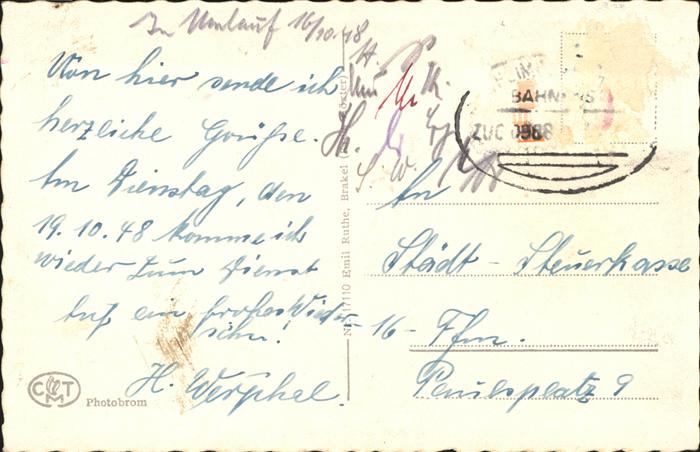 In Umlauf 16/10.48
Von hier sende ich
herzliche Grüße.
Am Dienstag, den
19.10.48 komme ich
wieder zum Dienst
Auf ein großes Wieder-
sehn!
H. Werphal.
CMT
Photobrom
Nr. 17110 Emil Ruthe, Brakel
BAHNPOS
ZUG 0988
An
Städt - Steuerkasse
-16- Ffm.
Paulsplatz 9